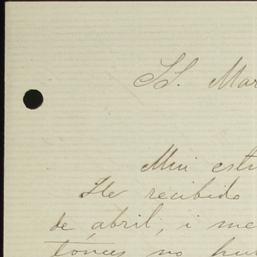 SS. Mar
Mui esti
He recibido
de abril, i me
tónces no hu